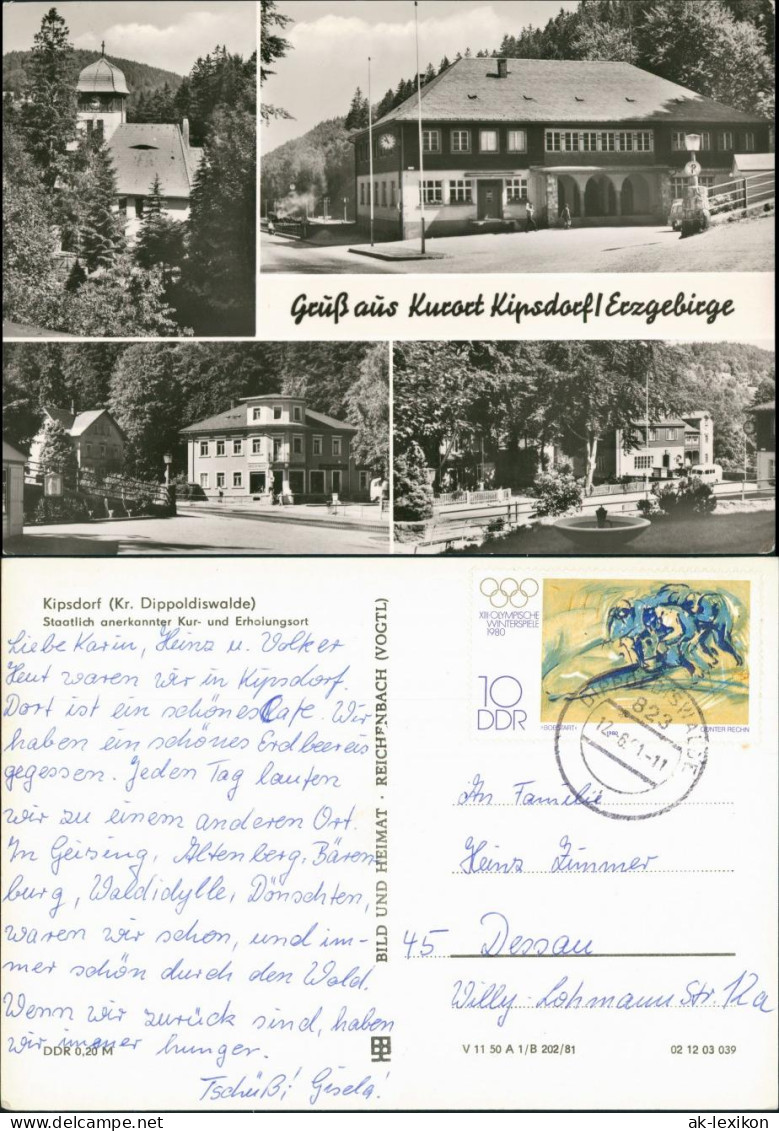 Gruß aus Kurort Kipsdorf/Erzgebirge
Kipsdorf (Kr. Dippoldiswalde)
Staatlich anerkannter Kur- und Erholungsort
Liebe Karin, Heinz u. Volker
Heut waren wir in Kipsdorf.
Dort ist ein schönes Cafe. Wir
haben ein schönes Erdbeereis
gegessen. Jeden Tag laufen
wir zu einem anderen Ort.
In Geising, Altenberg, Bären
burg, Waldidylle, Dönschten,
waren wir schon, und im-
mer schön durch den Wald.
Wenn wir zurück sind, haben
wir immer hunger.
Tschüß! Gisela!
DDR 0,20 M
BILD UND HEIMAT · REICHENBACH (VOGTL)
XIII·OLYMPISCHE
WINTERSPIELE
1980
10
DDR
»BOBSTART«
GÜNTER RECHN
823
An Familie
Heinz Zimmer
45 Dessau
Willy-Lohmann Str. 12a
V 11 50 A 1/B 202/81
02 12 03 039
ak-lexikon